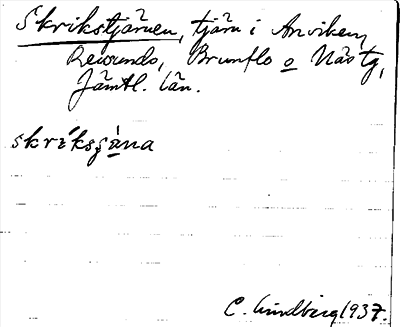 Skrikstjärnen, tjärn i Anviken,
Revsunds, Brunflo o Näs tg,
Jämtl. län.
skríksʃàna
C. Lindberg 1937.